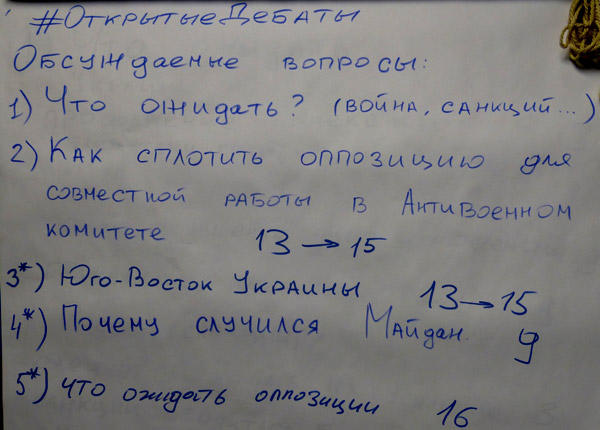 #ОткрытыеДебаты
Обсуждаемые вопросы:
1) Что ожидать? (война, санкций...)
2) Как сплотить оппозицию для
совместной работы в Антивоенном
комитете 13 → 15
3*) Юго-Восток Украины 13 → 15
4*) Почему случился Майдан. 9
5*) что ожидать оппозиции 16